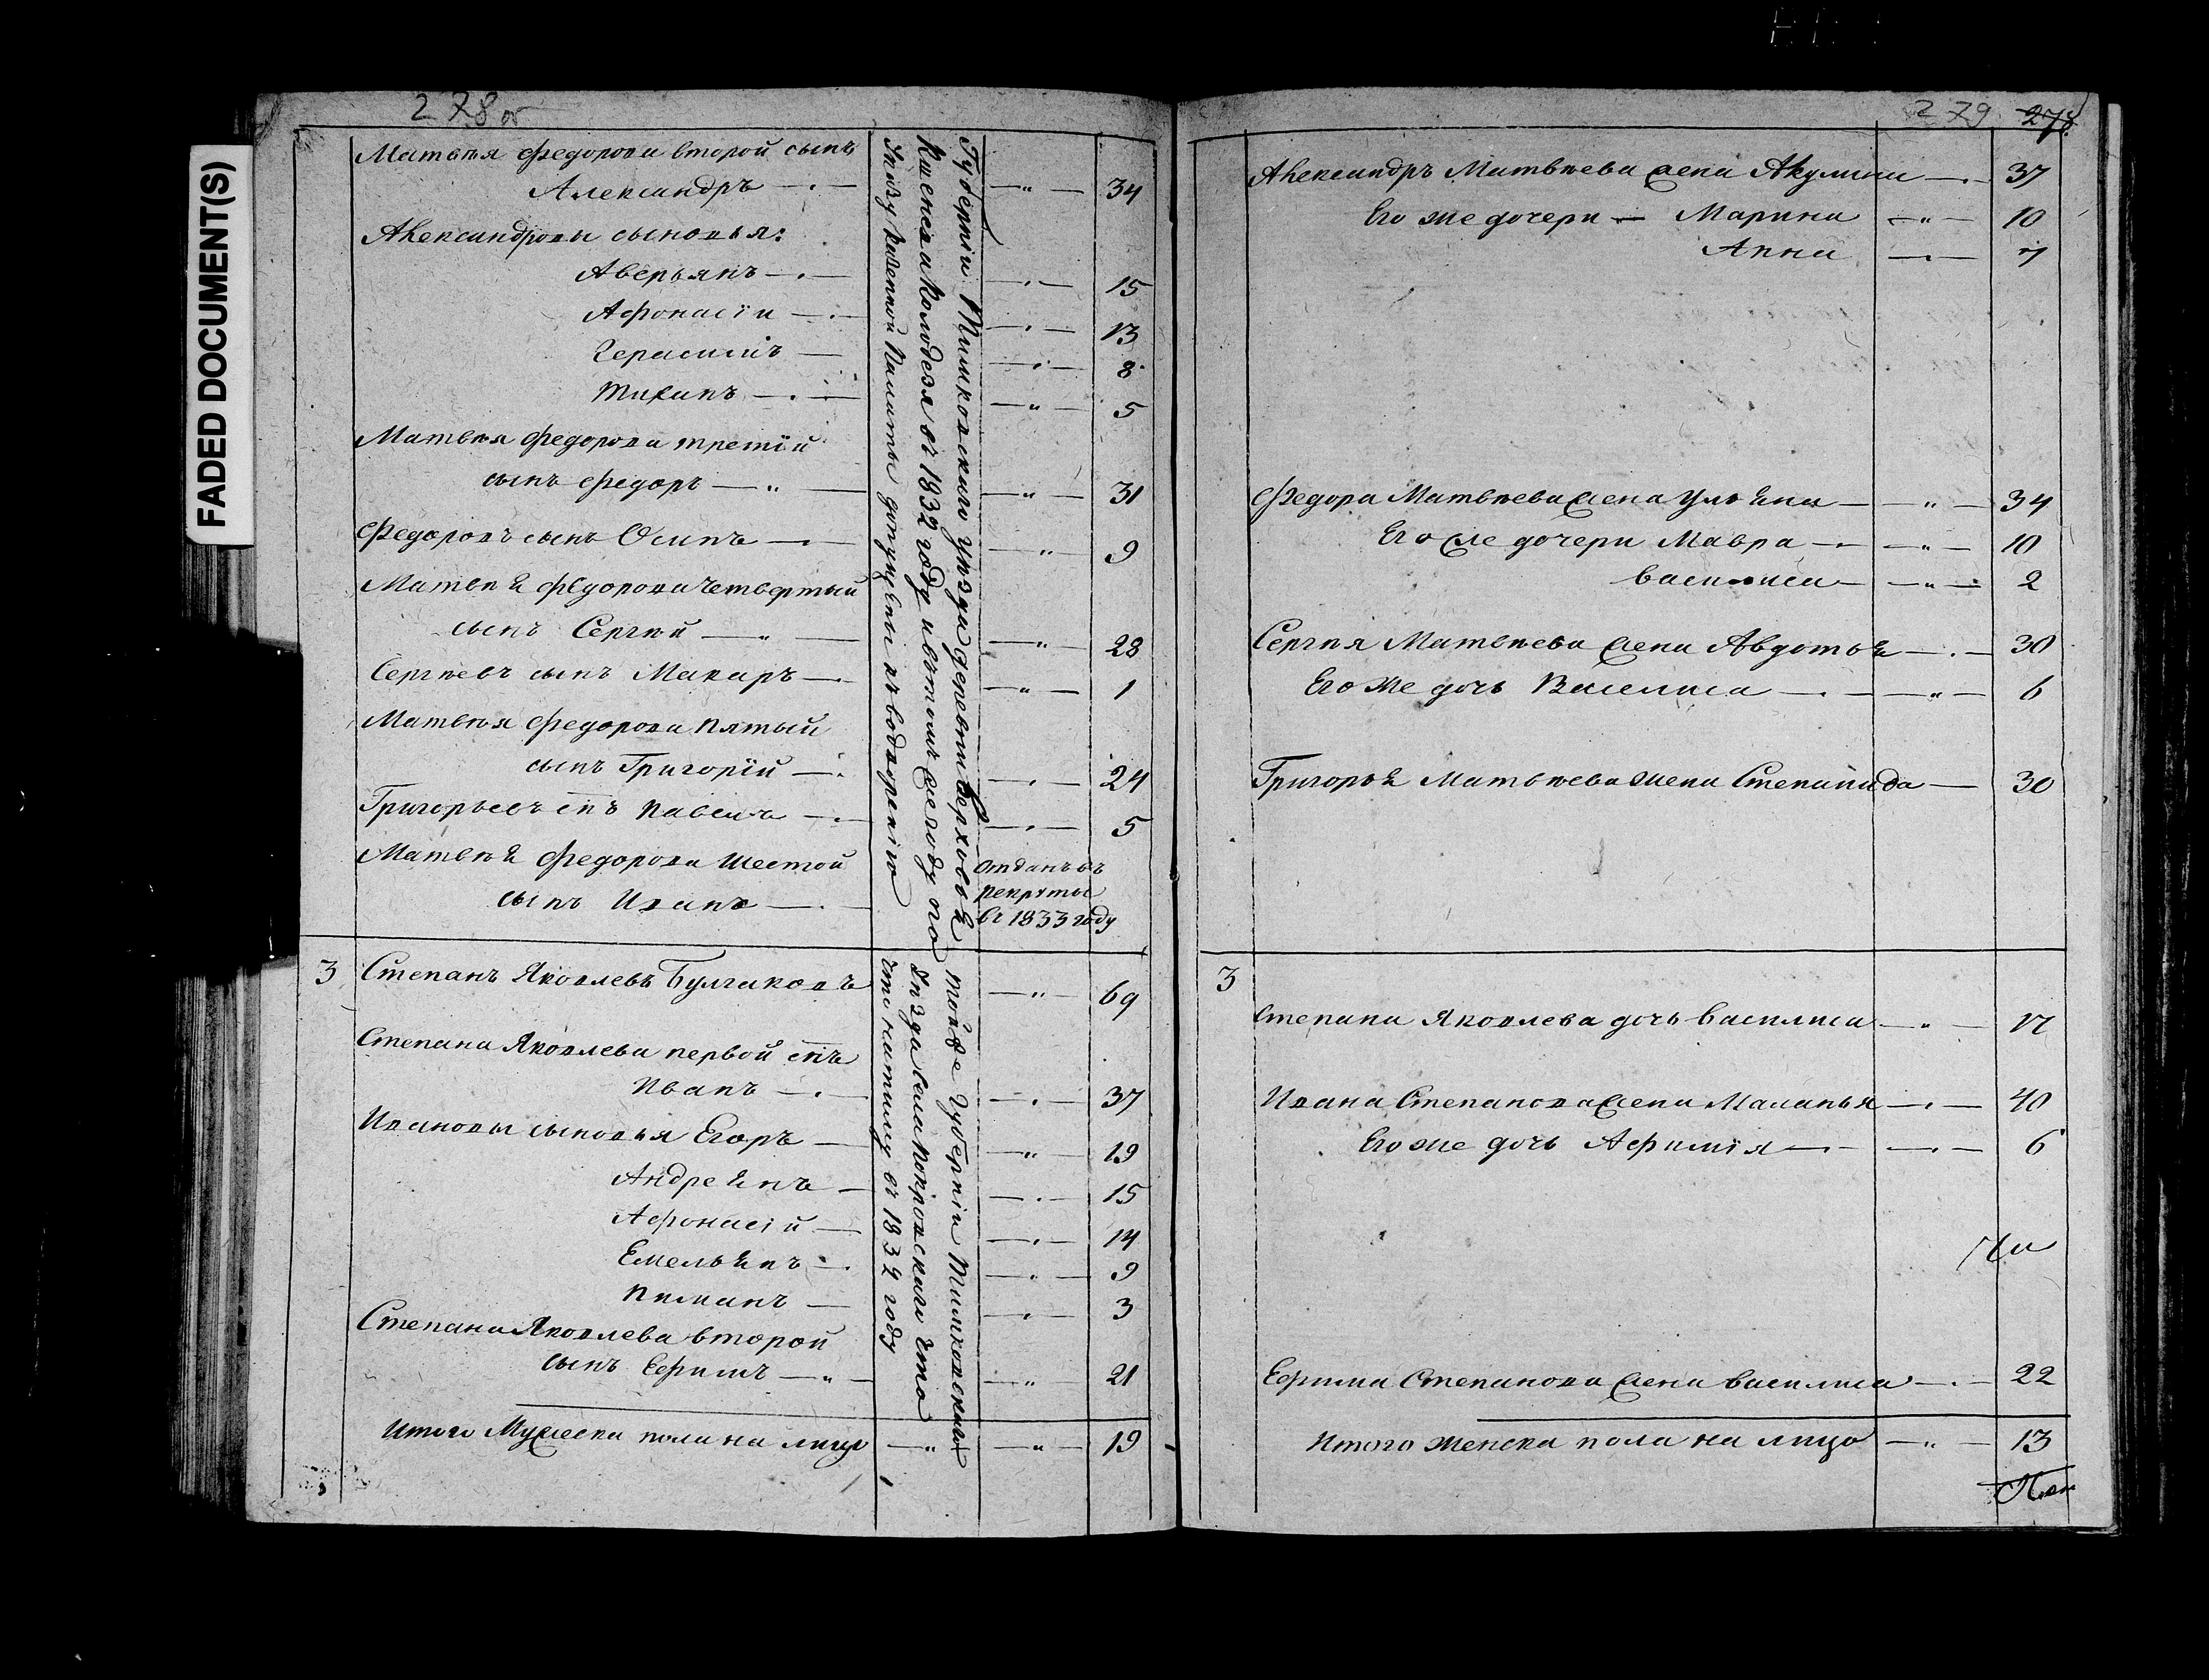 278 об
Матвѣя Федорова второй сынъ
Александръ — " — 34
Александровы сыновья:
Аверьянъ — " — 15
Афонасiи — " — 13
Герасимъ — " — 8
Тиханъ — " — 5
Матвѣя Федорова третiй
сынъ Федоръ — " — 31
Федоровъ сынъ Осипъ — " — 9
Матвѣя Федорова четвертый
сынъ Сергѣй — " — 28
Сергѣевъ сынъ Макаръ — " — 1
Матвѣя Федорова пятый
сынъ Григорiй — " — 24
Григорьевъ снъ Павелъ — " — 5
Матвѣя Федорова шестой
сынъ Иванъ —
отданъ въ
рекруты
въ 1833 году
Губернiи Тимковскаго уѣзда деревни Верховья
Кшенева Колодезя въ 1832 году и въ томъ же году по
Указу Казенной Палаты допущены къ водворенiю
3 Степанъ Яковлевъ Булгаковъ — " — 69
Степана Яковлева первой снъ
Иванъ — " — 37
Ивановы сыновья Егоръ — " — 19
Андреянъ — " — 15
Афонасiй — " — 14
Емельянъ — " — 9
Пиманъ — " — 3
Степана Яковлева второй
сынъ Ефимъ — " — 21
той же Губернiи Тимковскаго
Уѣзда села Покровскаго что
въ 1832 году
Итого Мужеска пола на лицо — " — " — 19
279 278
Александръ Матвѣева жена Акулина — 37
Его же дочери — Марина — " — 10
Анна — 7
Федора Матвѣева жена Ульяна — " — 34
Его же дочери Мавра — " — 10
Василиса — " — 2
Сергѣя Матвѣева жена Авдотья — 30
Его же дочь Василиса — " — 6
Григорья Матвѣева жена Степанида — 30
3
Степана Яковлева дочь Василиса — " — 17
Ивана Степанова жена Маланья — 40
Его же дочь Афимiя — 6
Ефима Степанова жена Василиса — 22
Итого женска пола на лицо — " — 13
FADED DOCUMENT(S)